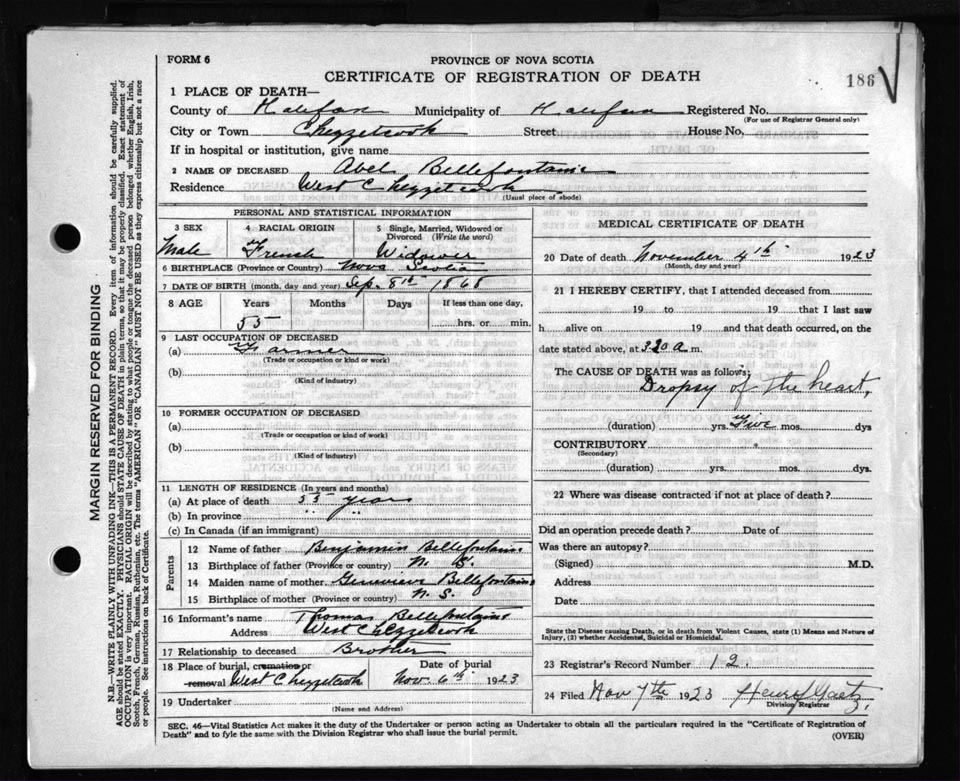 FORM 6
PROVINCE OF NOVA SCOTIA
CERTIFICATE OF REGISTRATION OF DEATH
186
1 PLACE OF DEATH—
County of Halifax Municipality of Halifax Registered No.
(For use of Registrar General only)
City or Town Chezzetcook Street House No.
If in hospital or institution, give name
2 NAME OF DECEASED Abel Bellefontaine
Residence West Chezzetcook
(Usual place of abode)
PERSONAL AND STATISTICAL INFORMATION
3 SEX 4 RACIAL ORIGIN 5 Single, Married, Widowed or Divorced (Write the word)
Male French Widower
6 BIRTHPLACE (Province or Country) Nova Scotia
7 DATE OF BIRTH (month, day and year) Sep. 8th 1868
8 AGE Years Months Days If less than one day,
55 hrs. or min.
9 LAST OCCUPATION OF DECEASED
(a) Farmer
(Trade or occupation or kind or work)
(b)
(Kind of industry)
10 FORMER OCCUPATION OF DECEASED
(a)
(Trade or occupation or kind of work)
(b)
(Kind of industry)
11 LENGTH OF RESIDENCE (In years and months)
(a) At place of death 55 years
(b) In province " "
(c) In Canada (if an immigrant)
Parents
12 Name of father Benjamin Bellefontaine
13 Birthplace of father (Province or country) N. S.
14 Maiden name of mother Genevieve Bellefontaine
15 Birthplace of mother (Province or country) N. S.
16 Informant's name Thomas Bellefontaine
Address West Chezzetcook
17 Relationship to deceased Brother
18 Place of burial, cremation or removal West Chezzetcook Date of burial Nov. 6th 1923
19 Undertaker
(Name and Address)
MEDICAL CERTIFICATE OF DEATH
20 Date of death November 4th 1923
(Month, day and year)
21 I HEREBY CERTIFY, that I attended deceased from
19 to 19 that I last saw
h alive on 19 and that death occurred, on
date stated above, at 3-20 a m.
The CAUSE OF DEATH was as follows;
Dropsy of the heart,
(duration) yrs. Five mos. dys
CONTRIBUTORY
(Secondary)
(duration) yrs. mos. dys
22 Where was disease contracted if not at place of death?
Did an operation precede death? Date of
Was there an autopsy?
(Signed) M.D.
Address
Date
State the Disease causing Death, or in death from Violent Causes, state (1) Means and Nature of Injury, (2) whether Accidental, Suicidal or Homicidal.
23 Registrar's Record Number 12.
24 Filed Nov 7th 1923 Henry
Division Registrar
SEC. 46—Vital Statistics Act makes it the duty of the Undertaker or person acting as Undertaker to obtain all the particulars required in the "Certificate of Registration of
Death" and to fyle the same with the Division Registrar who shall issue the burial permit.
(OVER)
MARGIN RESERVED FOR BINDING
N.B.—WRITE PLAINLY WITH UNFADING INK—THIS IS A PERMANENT RECORD. Every item of information should be carefully supplied.
AGE should be stated EXACTLY. PHYSICIANS should STATE CAUSE OF DEATH in plain terms, so that it may be properly classified. Exact statement of
OCCUPATION is very important. RACIAL ORIGIN will be described by stating to what people or tongue the deceased person belonged whether English, Irish,
Scotch, French, German, Russian, Ruthenian, etc. The terms "AMERICAN" OR "CANADIAN" MUST NOT BE USED as they express citizenship but not a race
or people. See instructions on back of Certificate.